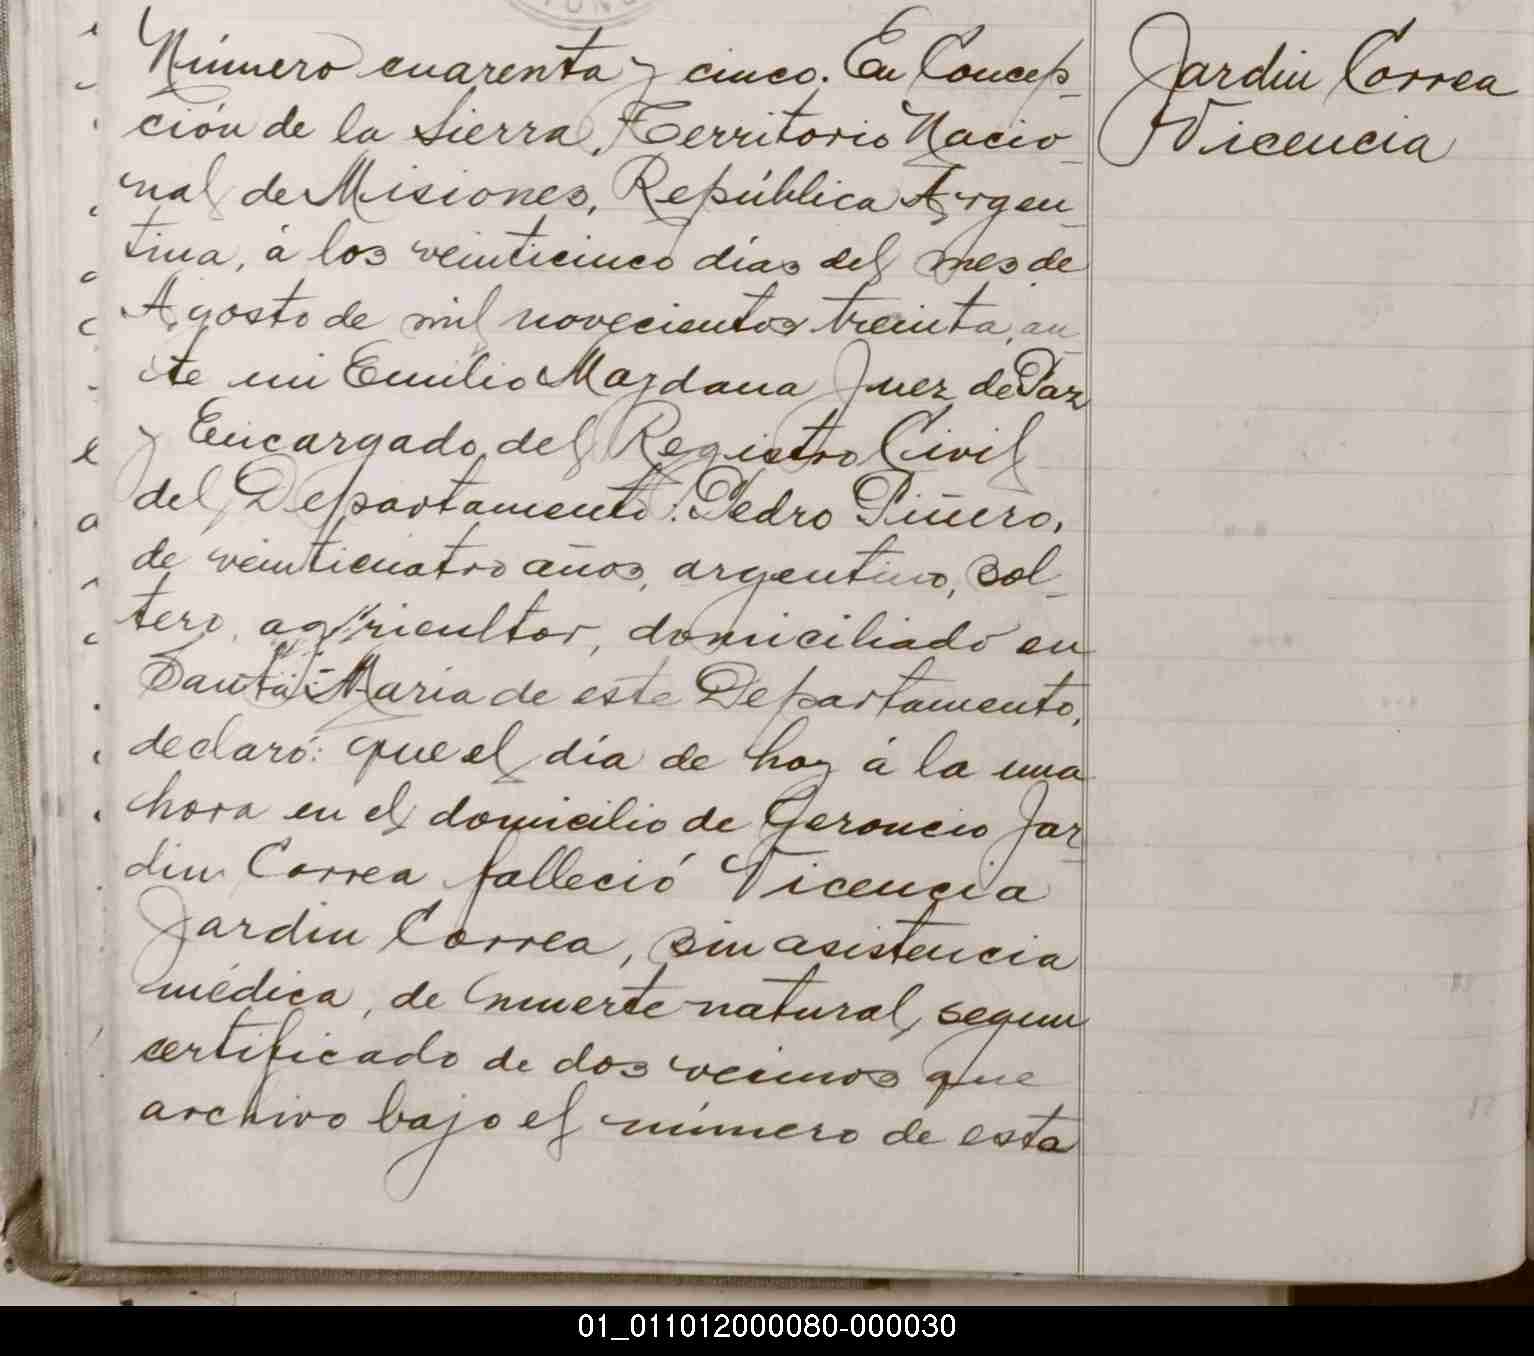 Número cuarenta y cinco. En Concep-
ción de la Sierra, Territorio Nacio-
nal de Misiones, República Argen-
tina, á los veinticinco días del mes de
Agosto de mil novecientos treinta, an-
te mi Emilio Maydana Juez de Paz
y Encargado del Registro Civil
del Departamento: Pedro Piñero,
de veinticuatro años, argentino, sol-
tero, agricultor, domiciliado en
Santa María de este Departamento,
declaró: que el día de hoy á la una
hora en el domicilio de Geroncio Jar-
din Correa falleció Vicencia
Jardin Correa, sin asistencia
médica, de muerte natural, segun
certificado de dos vecinos que
archivo bajo el número de esta
Jardin Correa
Vicencia
01_011012000080-000030